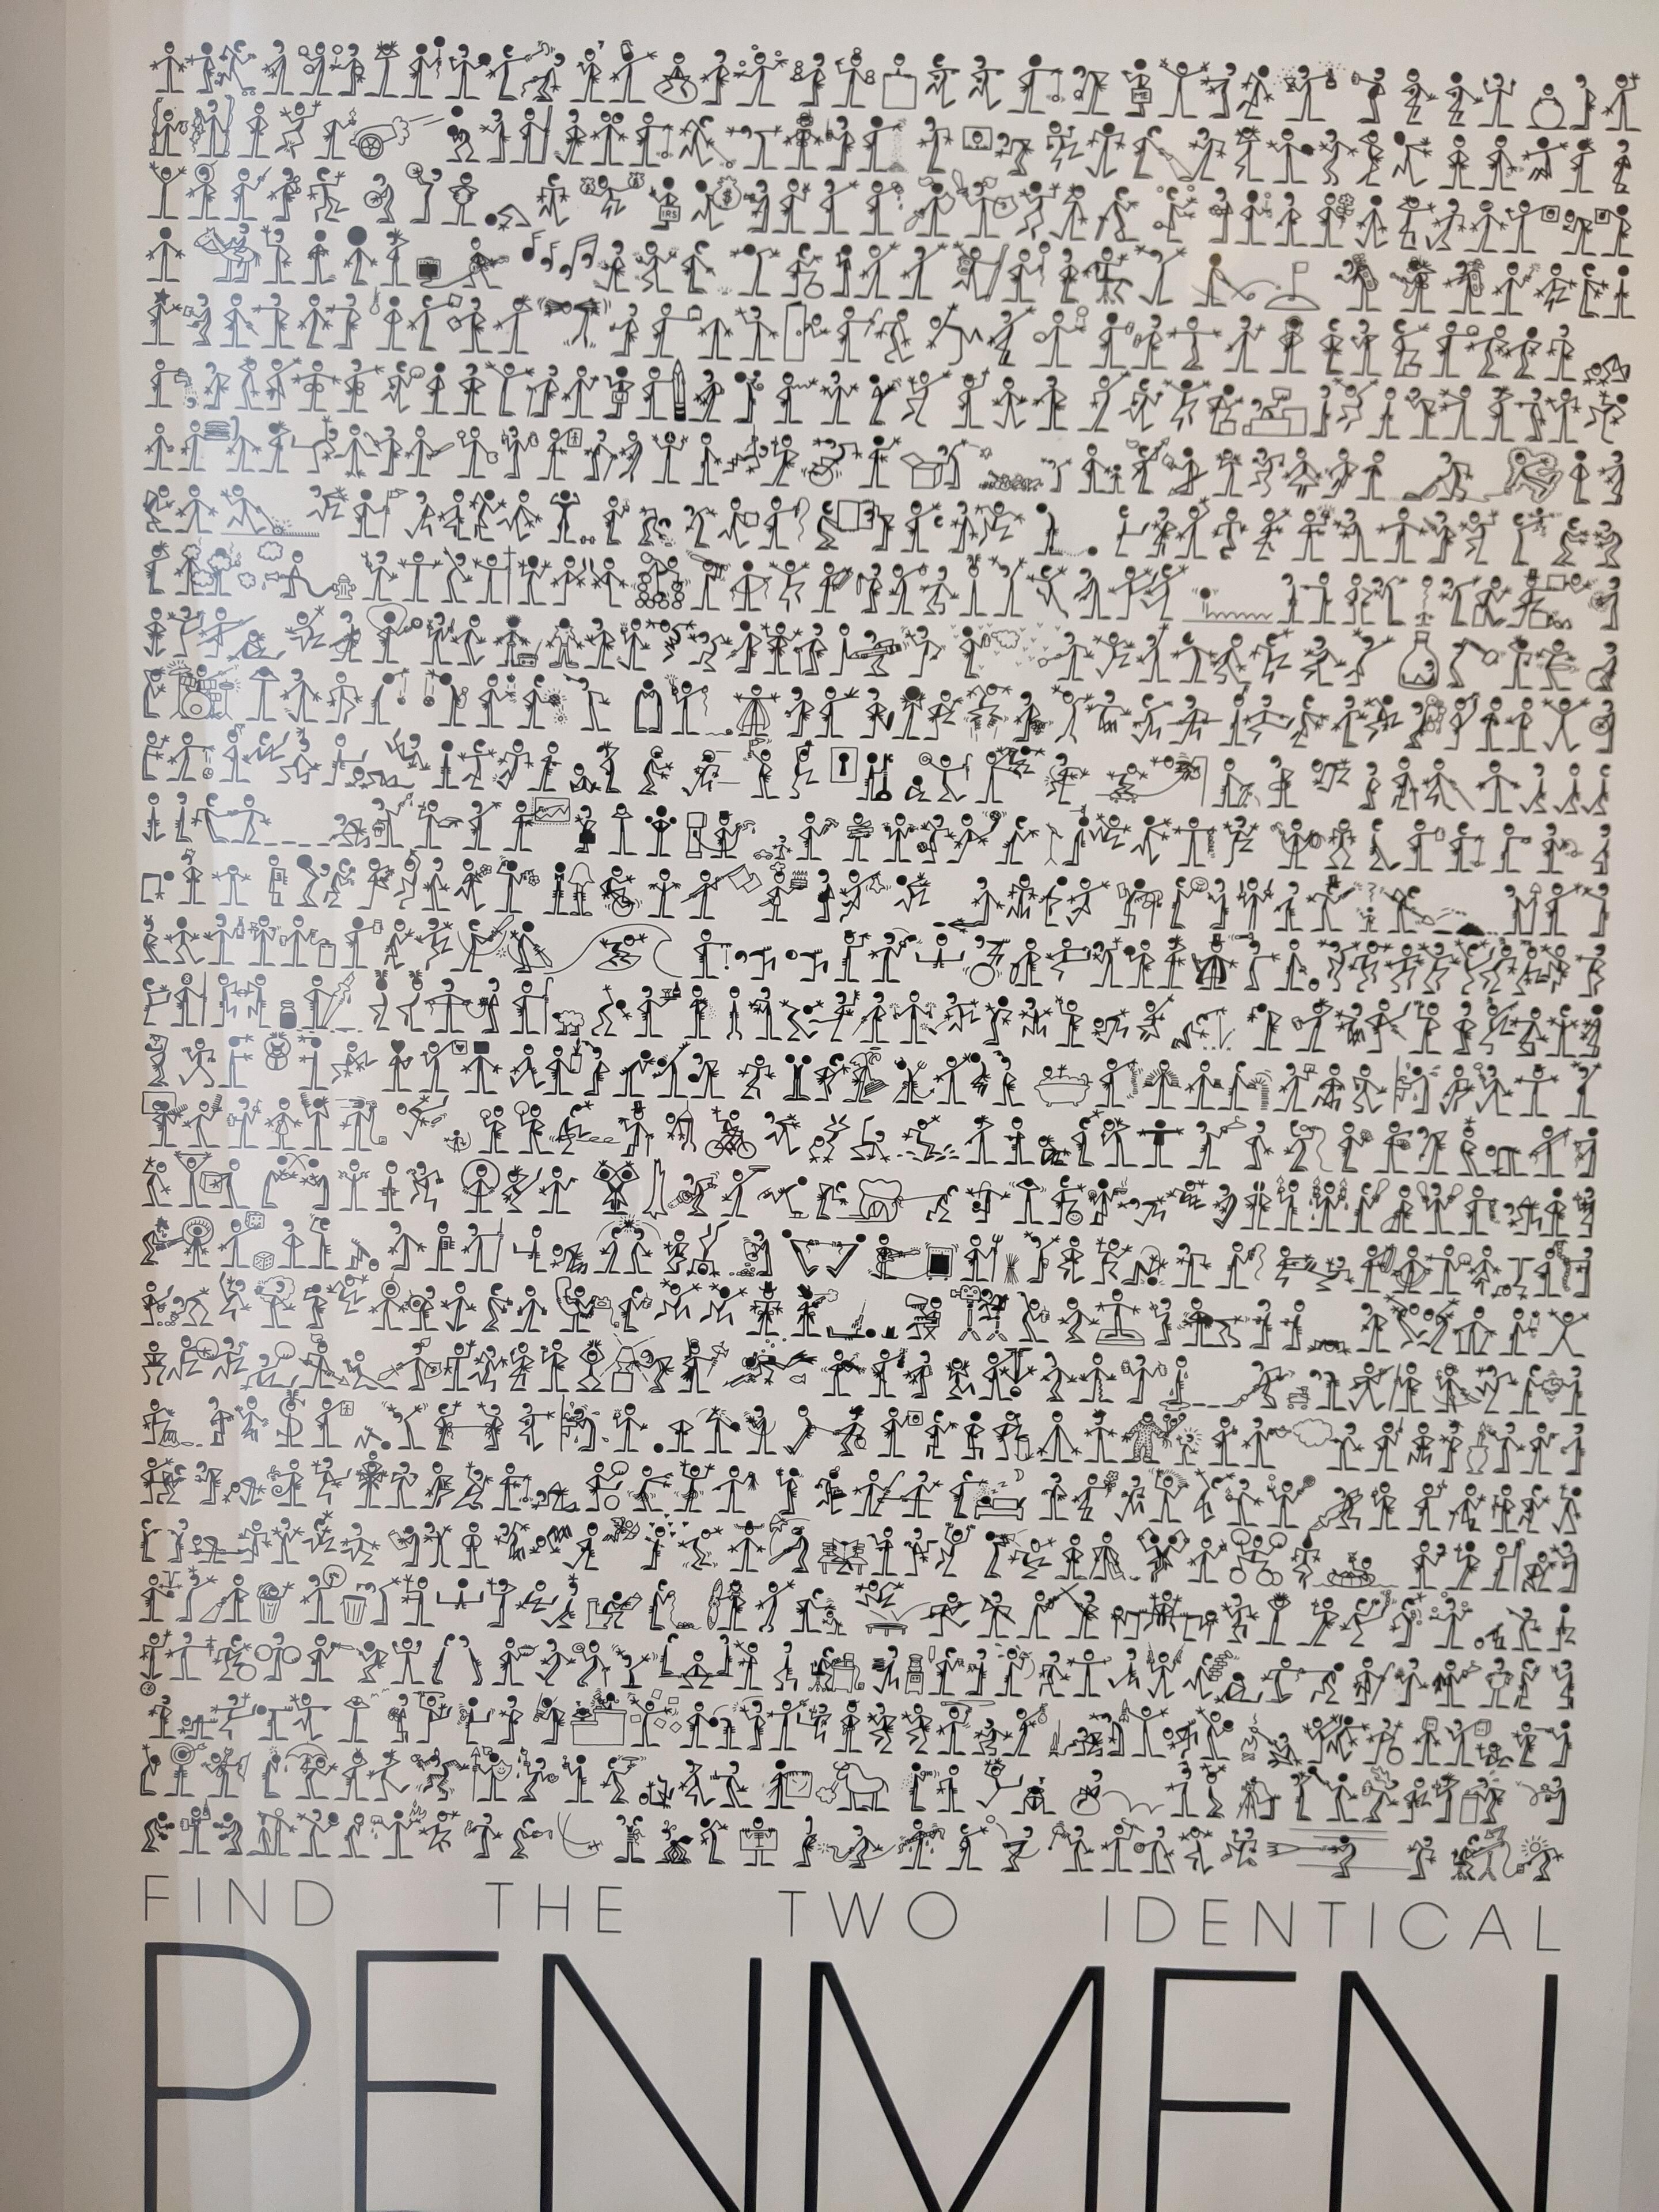 IRS
$
FIND THE TWO IDENTICAL
PENMEN